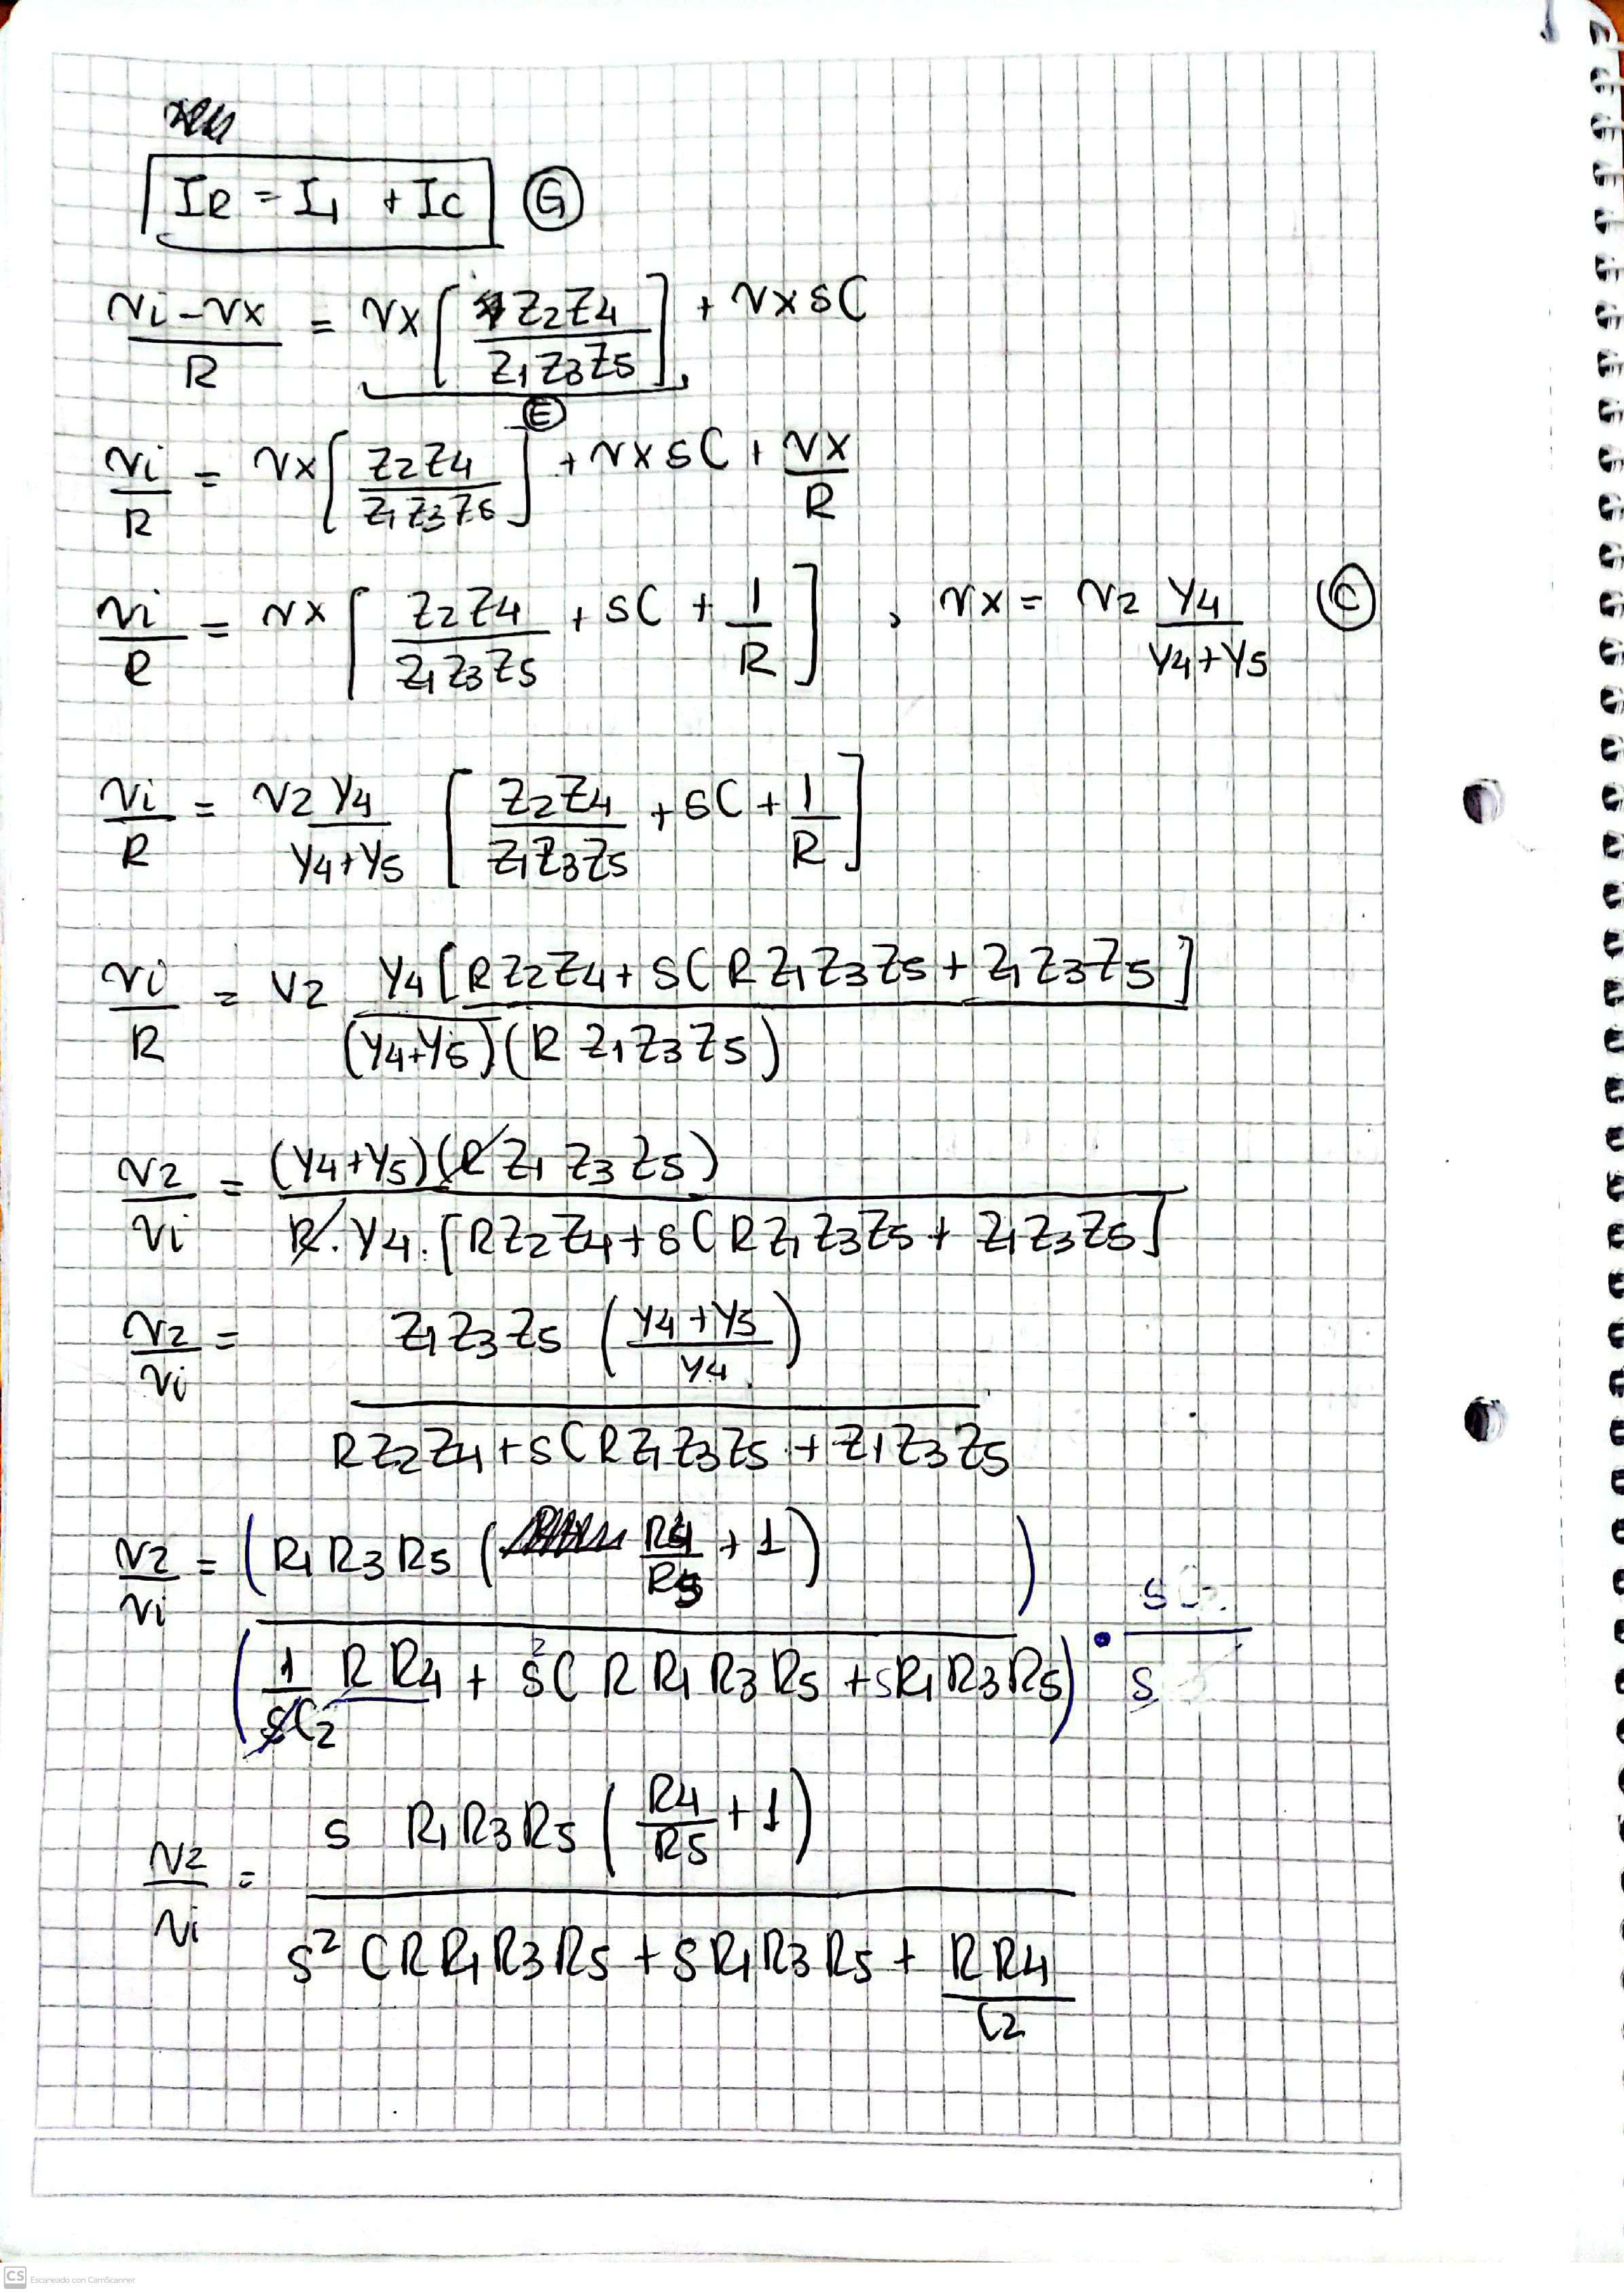 IR = I1 + IC (G)
(vi - vx)/R = vx [ Z2Z4 / Z1Z3Z5 ] + vx sC
(E)
vi/R = vx [ Z2Z4 / Z1Z3Z5 ] + vx sC + vx/R
vi/R = vx [ Z2Z4 / Z1Z3Z5 + sC + 1/R ] , vx = v2 Y4/(Y4+Y5) (C)
vi/R = v2 Y4/(Y4+Y5) [ Z2Z4 / Z1Z3Z5 + sC + 1/R ]
vi/R = v2 Y4 [RZ2Z4 + sCRZ1Z3Z5 + Z1Z3Z5] / (Y4+Y5)(R Z1Z3Z5)
v2/vi = (Y4+Y5)(R Z1 Z3 Z5) / R.Y4.[RZ2Z4 + sCRZ1Z3Z5 + Z1Z3Z5]
v2/vi = Z1Z3Z5 ( (Y4+Y5)/Y4 ) / RZ2Z4 + sCRZ1Z3Z5 + Z1Z3Z5
v2/vi = ( R1R3R5 ( R4/R5 + 1 ) ) / ( 1/sC2 R R4 + s²C R R1 R3 R5 + sR1R3R5 ) · s / s
v2/vi = s R1R3R5 ( R4/R5 + 1 ) / s² CRR1R3R5 + sR1R3R5 + RR4/C2
CS Escaneado con CamScanner